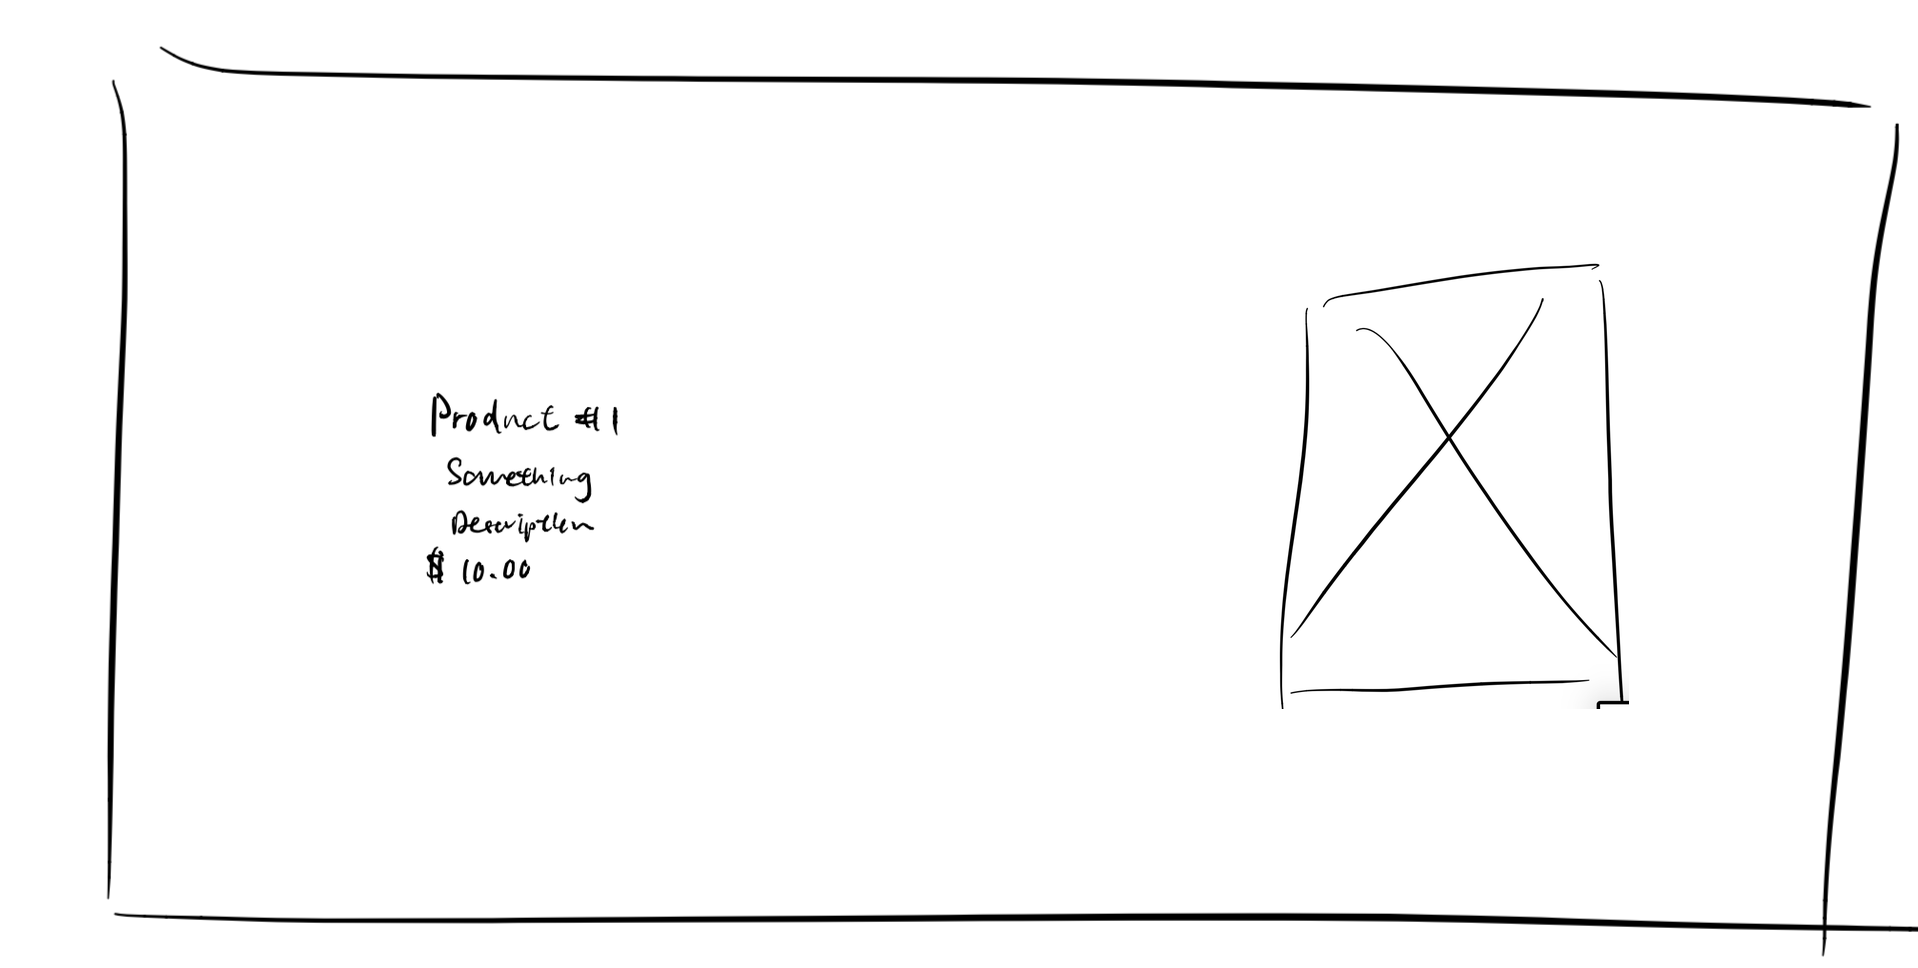 Product #1
Something
Description
$ 10.00